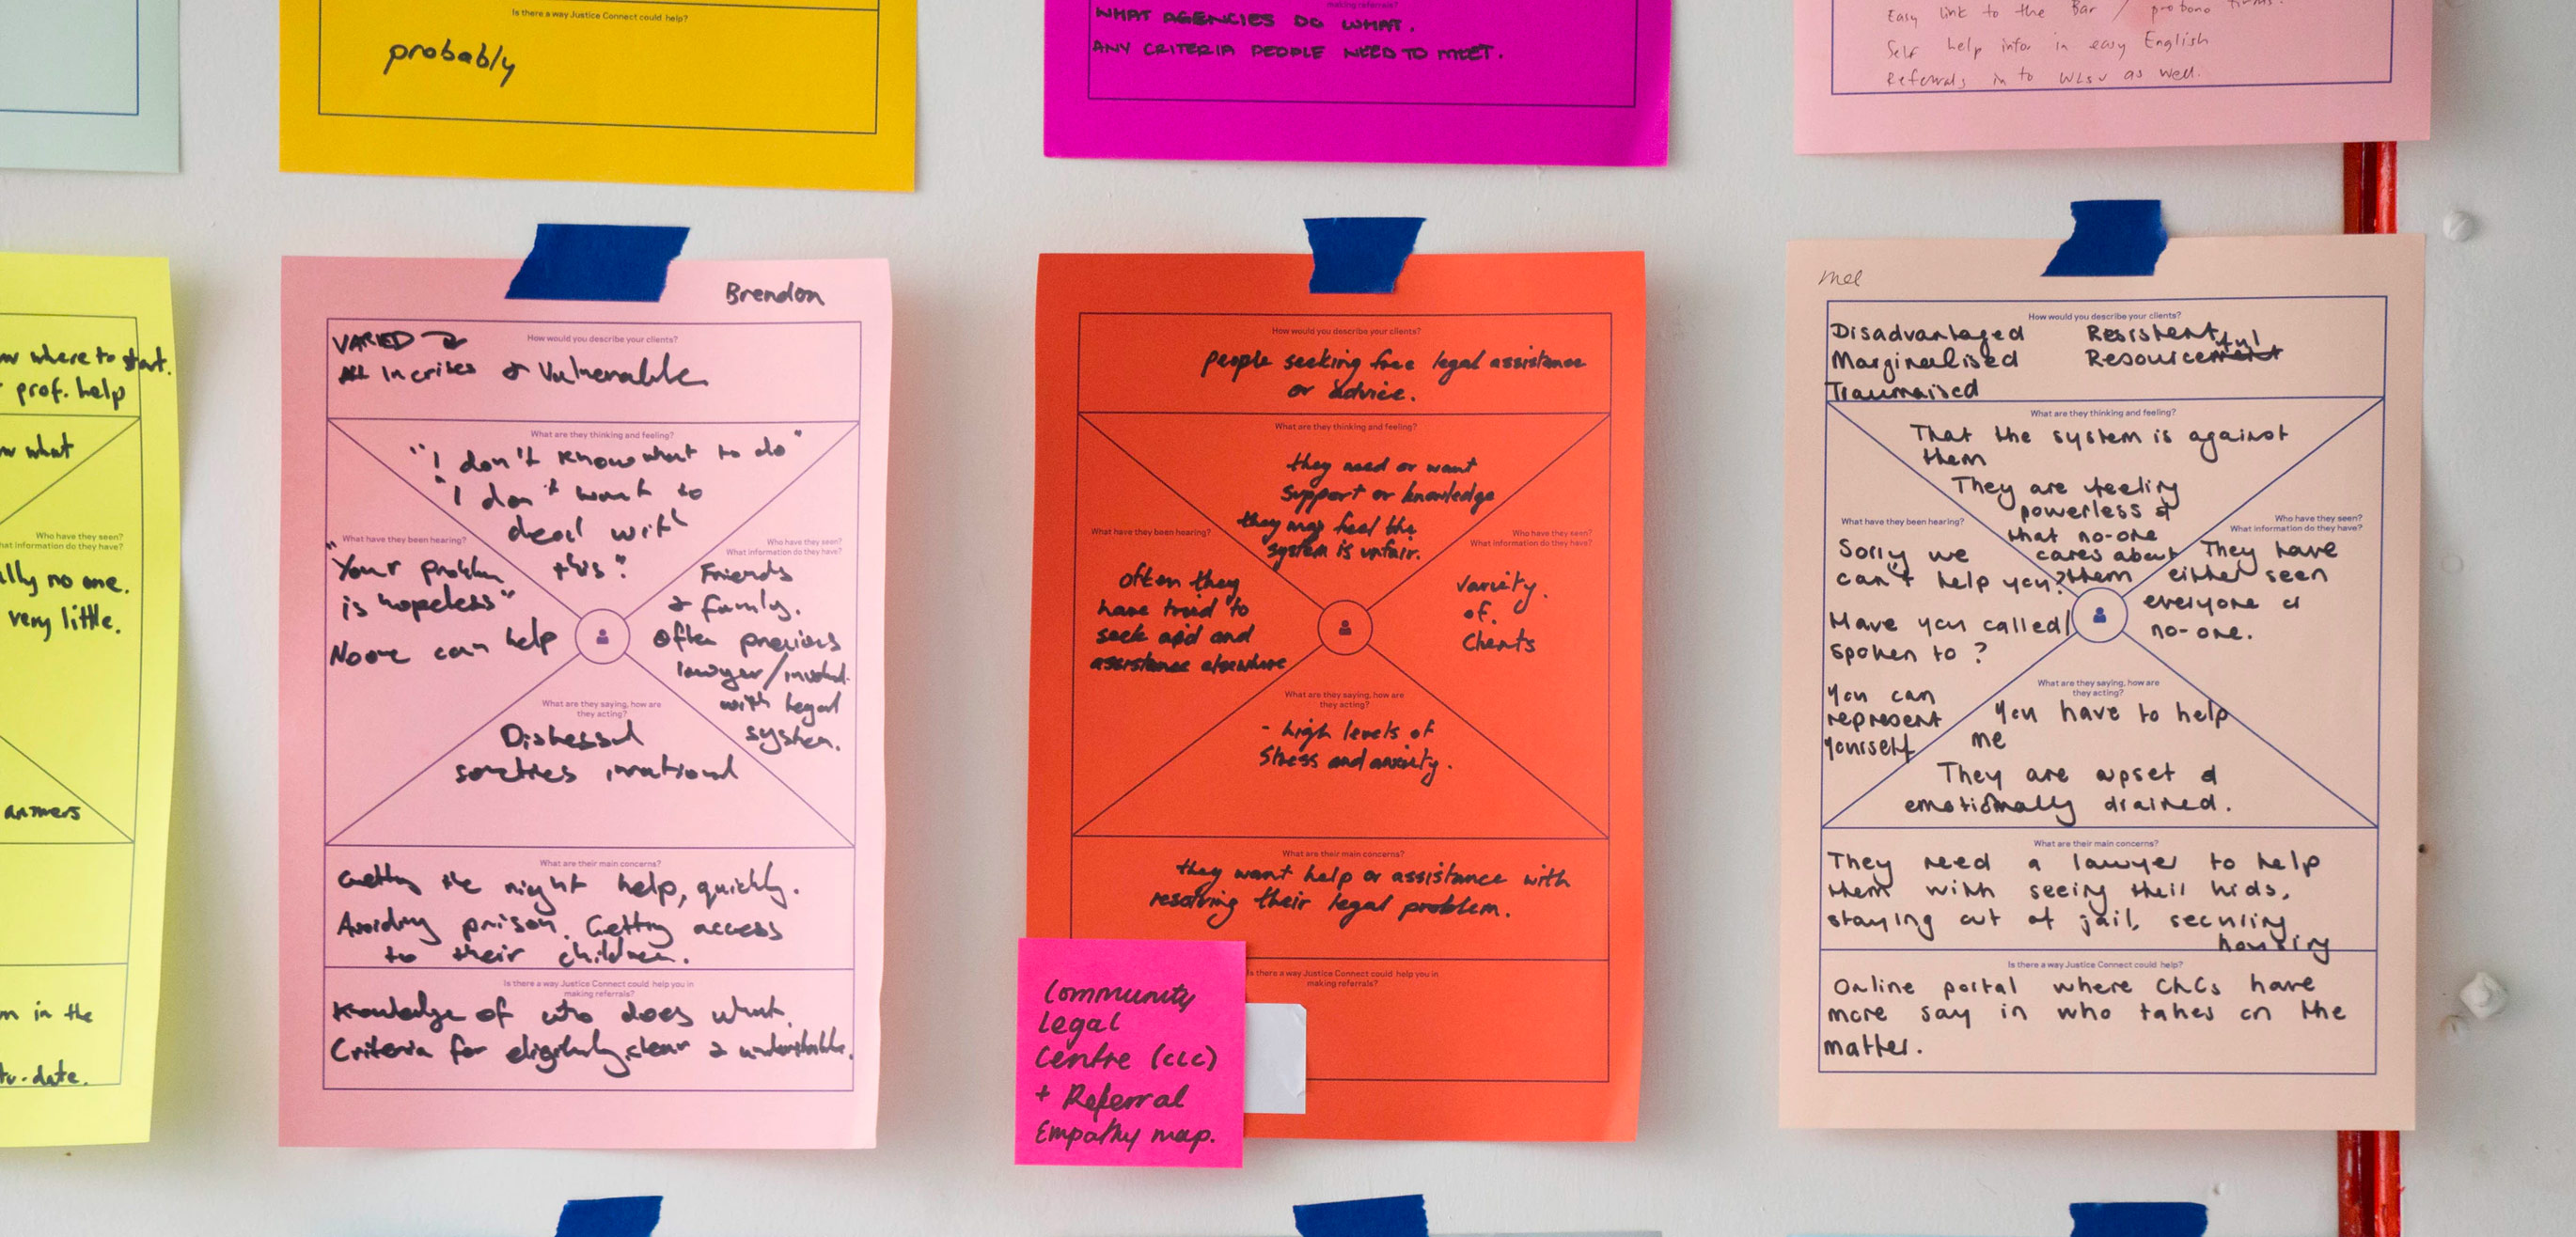 Is there a way Justice Connect could help?
probably
making referrals?
WHAT AGENCIES DO WHAT.
ANY CRITERIA PEOPLE NEED TO MEET.
Easy link to the Bar / probono firms.
Self help infor in easy English
Referrals in to WLSV as well.
where to start.
prof. help
what
Who have they seen?
hat information do they have?
lly no one.
very little.
answers
in the
date.
Brendon
How would you describe your clients?
VARIED
ALL In crises & Vulnerable
What are they thinking and feeling?
"I don't know what to do"
"I don't want to
deal with
this"
What have they been hearing?
"Your problem
is hopeless"
Noone can help
Who have they seen?
What information do they have?
Friends
& family.
Often previous
lawyer/involved
with legal
system.
What are they saying, how are
they acting?
Distressed
sometimes irrational
What are their main concerns?
Getting the right help, quickly.
Avoiding prison. Getting access
to their children.
Is there a way Justice Connect could help you in
making referrals?
Knowledge of who does what.
Criteria for eligibility clear & understandable.
How would you describe your clients?
people seeking free legal assistance
or advice.
What are they thinking and feeling?
they need or want
support or knowledge
they may feel the
system is unfair.
What have they been hearing?
often they
have tried to
seek aid and
assistance elsewhere
Who have they seen?
What information do they have?
variety.
of.
Clients
What are they saying, how are
they acting?
- high levels of
stress and anxiety.
What are their main concerns?
they want help or assistance with
resolving their legal problem.
Is there a way Justice Connect could help you in
making referrals?
Community
Legal
Centre (CLC)
+ Referral
Empathy map.
mel
How would you describe your clients?
Disadvantaged
Marginalised
Traumaised
Resistent
Resourceful
What are they thinking and feeling?
That the system is against
them
They are feeling
powerless &
that no-one
cares about
them
What have they been hearing?
Sorry we
can't help you?
Have you called/
spoken to?
You can
represent
yourself
Who have they seen?
What information do they have?
They have
either seen
everyone or
no-one.
What are they saying, how are
they acting?
You have to help
me
They are upset &
emotionally drained.
What are their main concerns?
They need a lawyer to help
them with seeing their kids,
staying out of jail, securing
housing
Is there a way Justice Connect could help?
Online portal where CLCs have
more say in who takes on the
matter.